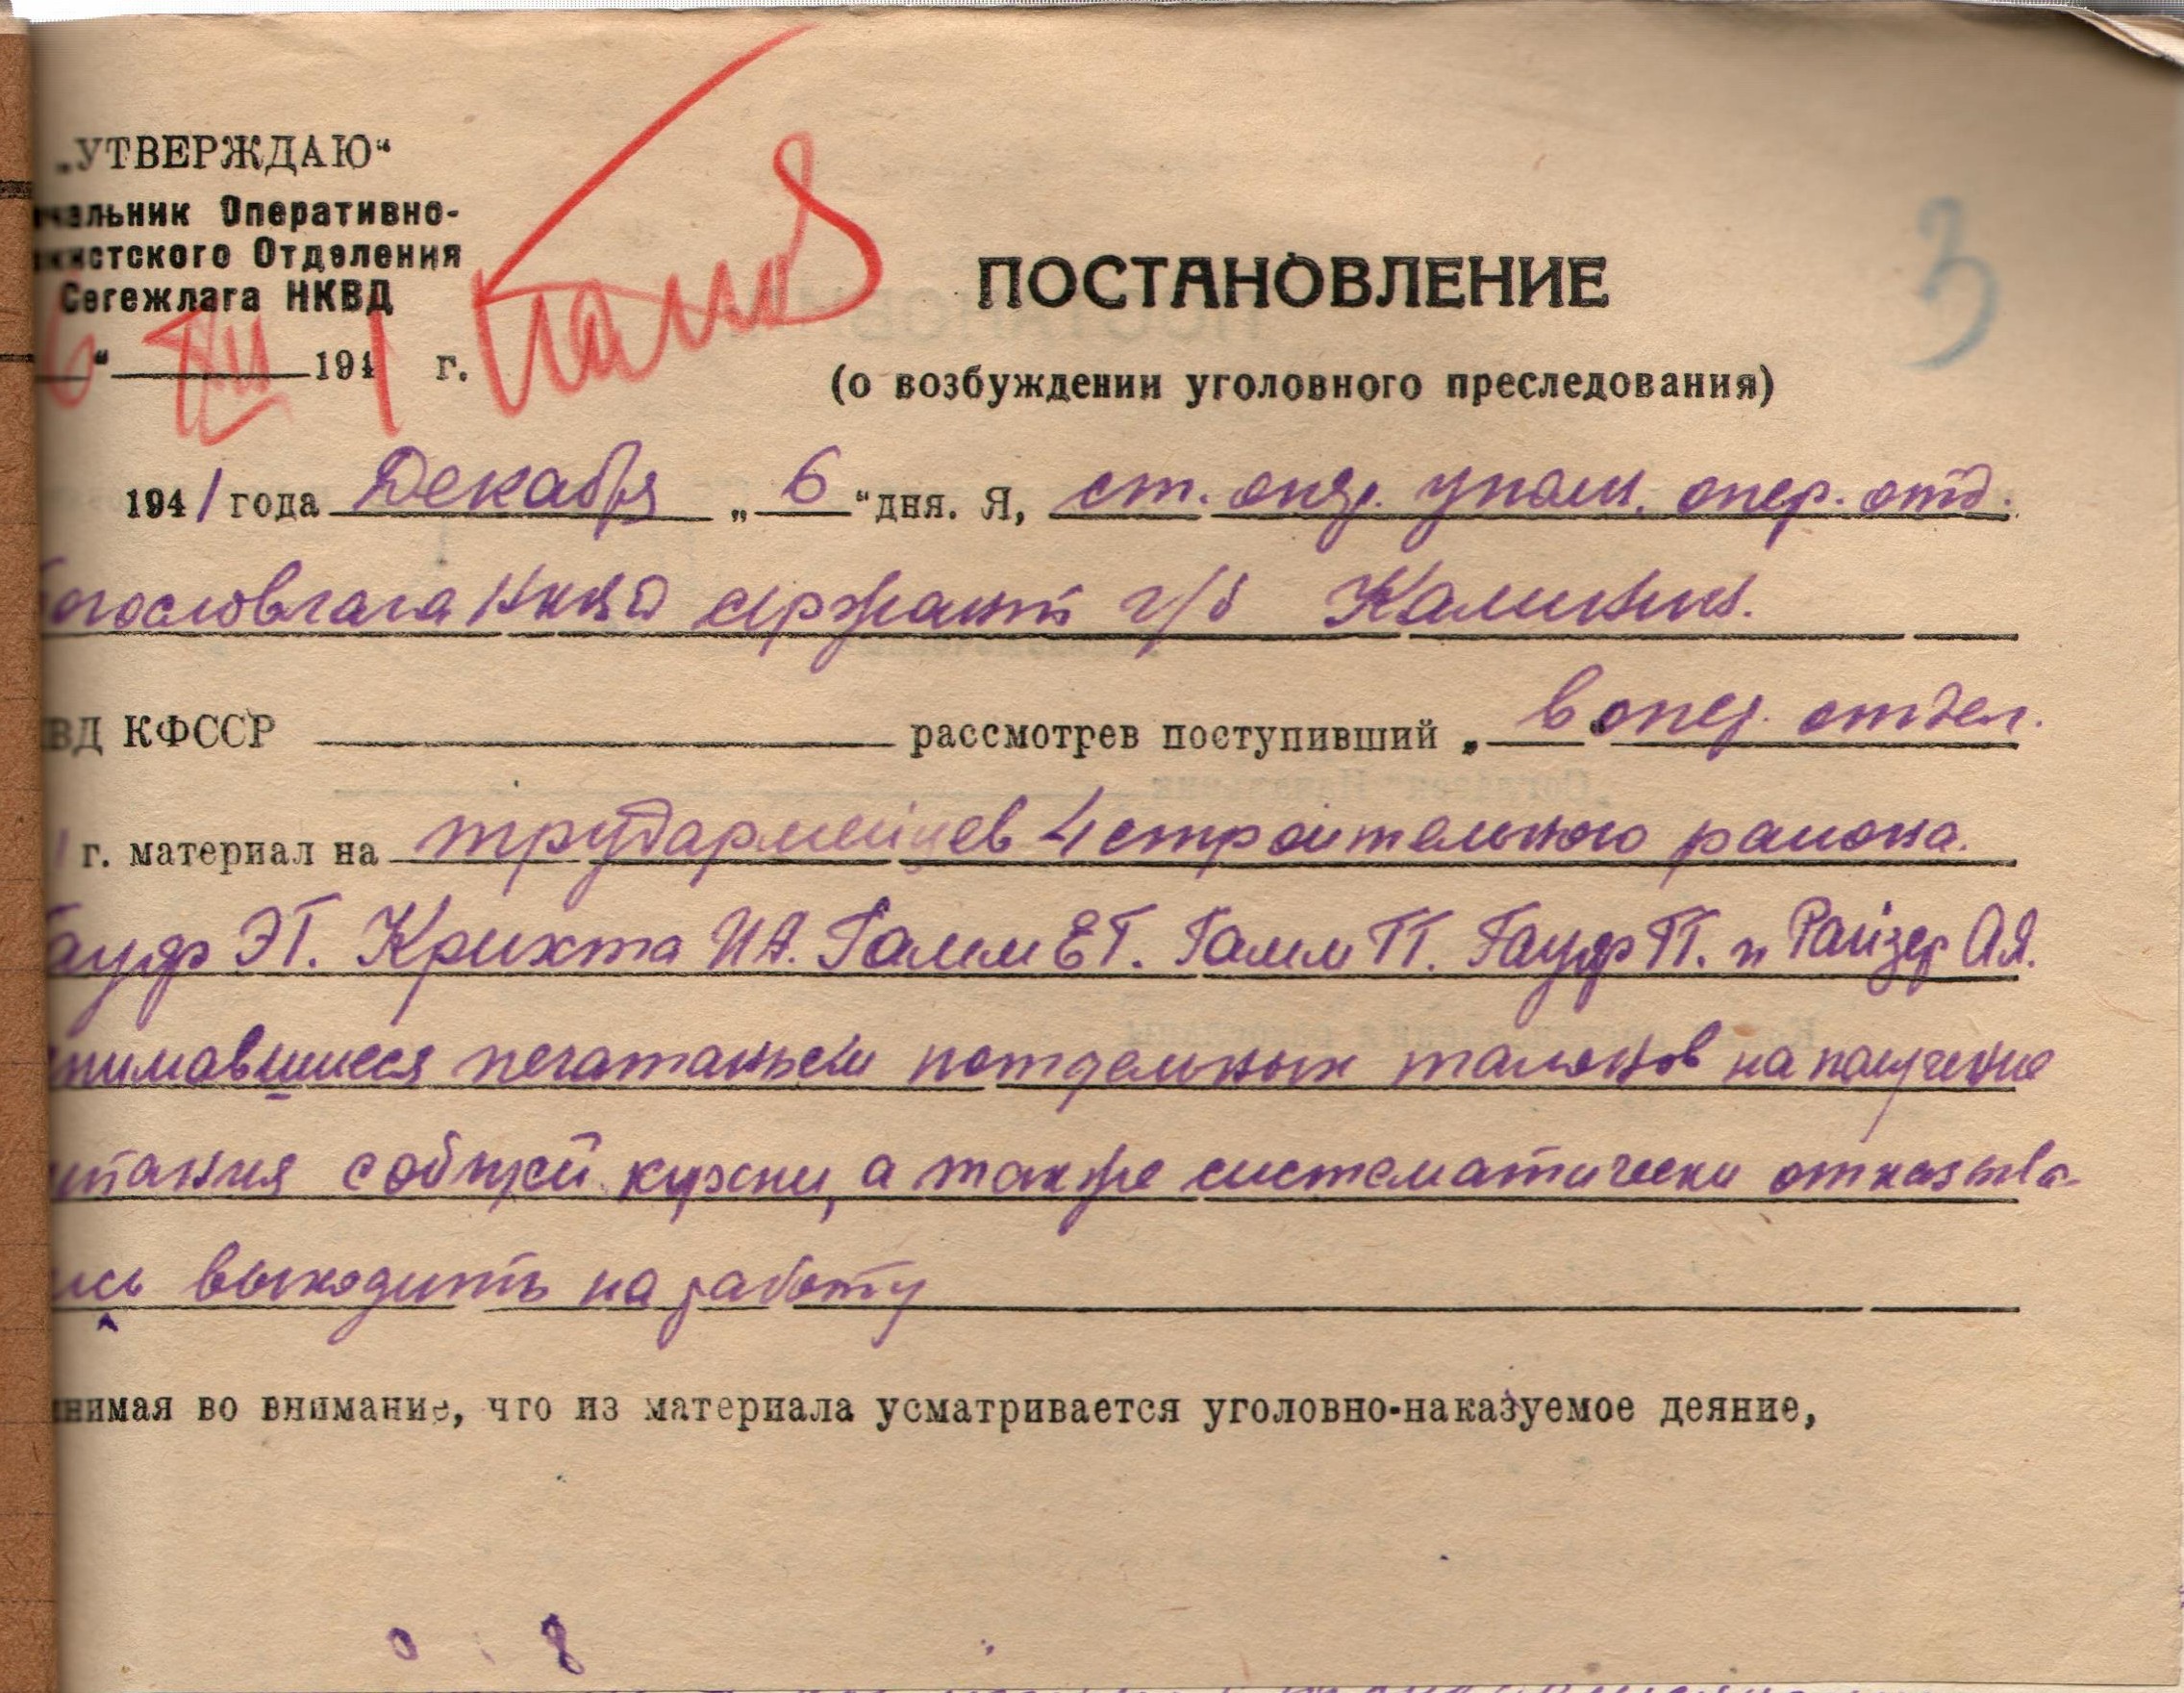 „УТВЕРЖДАЮ“
чальник Оперативно-
кистского Отделения
Сегежлага НКВД
6 “ XII 1941 г.
3
ПОСТАНОВЛЕНИЕ
(о возбуждении уголовного преследования)
1941 года Декабря „ 6 “ дня. Я, ст. опер. уполн. опер. отд.
Богословлага НКВД сержант г/б Калинин.
ВД КФССР рассмотрев поступивший „ в опер. отдел.
1 г. материал на трудармейцев 4 строительного района.
Гауф ЭГ. Крихта ИА. Гамм ЕГ. Гамм ГГ. Гауф ГГ. и Райзер АЯ.
нимавшиеся печатаньем потдельных талонов на получение
итания собщей кухни, а также систематически отказыва-
ись выходить на работу
инимая во внимание, что из материала усматривается уголовно-наказуемое деяние,